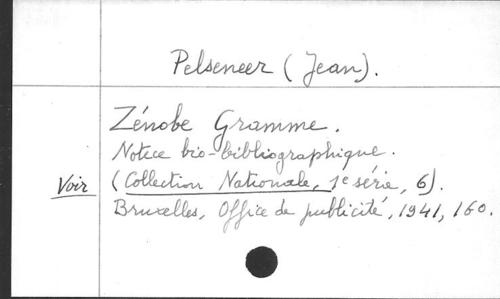 Pelseneer (Jean).
Zénobe Gramme.
Notice bio-bibliographique.
Voir (Collection Nationale, 1e série, 6).
Bruxelles, Office de publicité, 1941, 160.